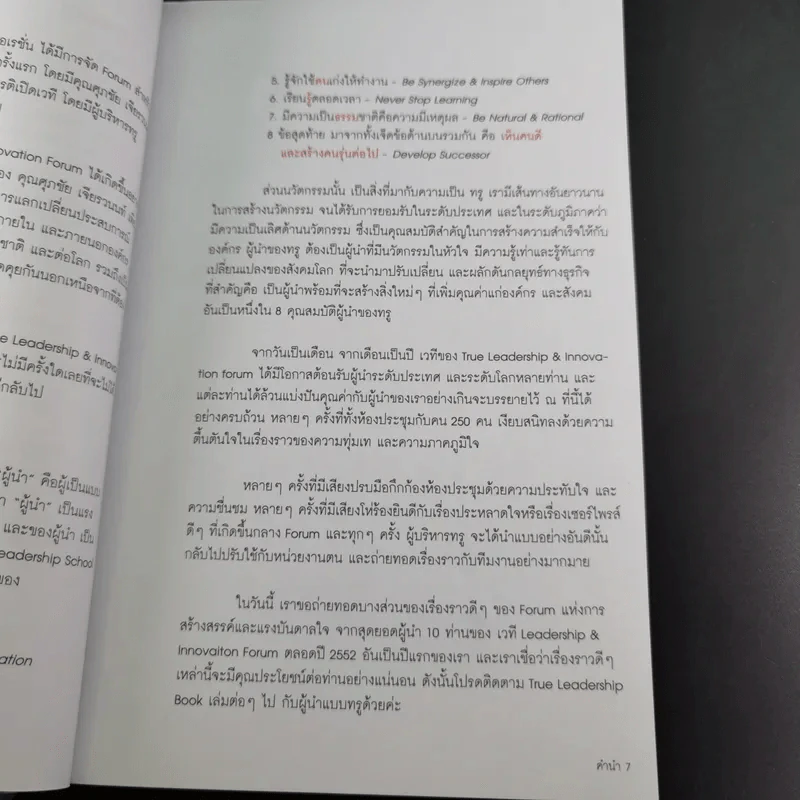 อเรชั่น ได้มีการจัด Forum สำห
รั้งแรก โดยมีคุณศุภชัย เจียรวน
รติเปิดเวที โดยมีผู้บริหารทรู
novation Forum ได้เกิดขึ้น
อง คุณศุภชัย เจียรวนนท์
การแลกเปลี่ยนประสบการณ์
ภายใน และภายนอกองค์กร
ชาติ และต่อโลก รวมถึง
ดคุยกันนอกเหนือจากที่
ue Leadership & Innov
ะไม่มีครั้งใดเลยที่จะไม่
กลับไป
"ผู้นำ" คือผู้เป็นแบบ
า "ผู้นำ" เป็นแรง
และของผู้นำ เป็น
eadership School
ของ
ation
5. รู้จักใช้คนเก่งให้ทำงาน - Be Synergize & Inspire Others
6. เรียนรู้ตลอดเวลา - Never Stop Learning
7. มีความเป็นธรรมชาติคือความมีเหตุผล - Be Natural & Rational
8 ข้อสุดท้าย มาจากทั้งเจ็ดข้อด้านบนรวมกัน คือ เห็นคนดี
และสร้างคนรุ่นต่อไป - Develop Successor
ส่วนนวัตกรรมนั้น เป็นสิ่งที่มากับความเป็น ทรู เรามีเส้นทางอันยาวนาน
ในการสร้างนวัตกรรม จนได้รับการยอมรับในระดับประเทศ และในระดับภูมิภาคว่า
มีความเป็นเลิศด้านนวัตกรรม ซึ่งเป็นคุณสมบัติสำคัญในการสร้างความสำเร็จให้กับ
องค์กร ผู้นำของทรู ต้องเป็นผู้นำที่มีนวัตกรรมในหัวใจ มีความรู้เท่าและรู้ทันการ
เปลี่ยนแปลงของสังคมโลก ที่จะนำมาปรับเปลี่ยน และผลักดันกลยุทธ์ทางธุรกิจ
ที่สำคัญคือ เป็นผู้นำพร้อมที่จะสร้างสิ่งใหม่ๆ ที่เพิ่มคุณค่าแก่องค์กร และสังคม
อันเป็นหนึ่งใน 8 คุณสมบัติผู้นำของทรู
จากวันเป็นเดือน จากเดือนเป็นปี เวทีของ True Leadership & Innova-
tion forum ได้มีโอกาสต้อนรับผู้นำระดับประเทศ และระดับโลกหลายท่าน และ
แต่ละท่านได้ล้วนแบ่งปันคุณค่ากับผู้นำของเราอย่างเกินจะบรรยายไว้ ณ ที่นี้ได้
อย่างครบถ้วน หลายๆ ครั้งที่ทั้งห้องประชุมกับคน 250 คน เงียบสนิทลงด้วยความ
ตื้นตันใจในเรื่องราวของความทุ่มเท และความภาคภูมิใจ
หลายๆ ครั้งที่มีเสียงปรบมือกึกก้องห้องประชุมด้วยความประทับใจ และ
ความชื่นชม หลายๆ ครั้งที่มีเสียงโห่ร้องยินดีกับเรื่องประหลาดใจหรือเรื่องเซอร์ไพรส์
ดีๆ ที่เกิดขึ้นกลาง Forum และทุกๆ ครั้ง ผู้บริหารทรู จะได้นำแบบอย่างอันดีนั้น
กลับไปปรับใช้กับหน่วยงานตน และถ่ายทอดเรื่องราวกับทีมงานอย่างมากมาย
ในวันนี้ เราขอถ่ายทอดบางส่วนของเรื่องราวดีๆ ของ Forum แห่งการ
สร้างสรรค์และแรงบันดาลใจ จากสุดยอดผู้นำ 10 ท่านของ เวที Leadership &
Innovaiton Forum ตลอดปี 2552 อันเป็นปีแรกของเรา และเราเชื่อว่าเรื่องราวดีๆ
เหล่านี้จะมีคุณประโยชน์ต่อท่านอย่างแน่นอน ดังนั้นโปรดติดตาม True Leadership
Book เล่มต่อๆ ไป กับผู้นำแบบทรูด้วยค่ะ
คำนำ 7